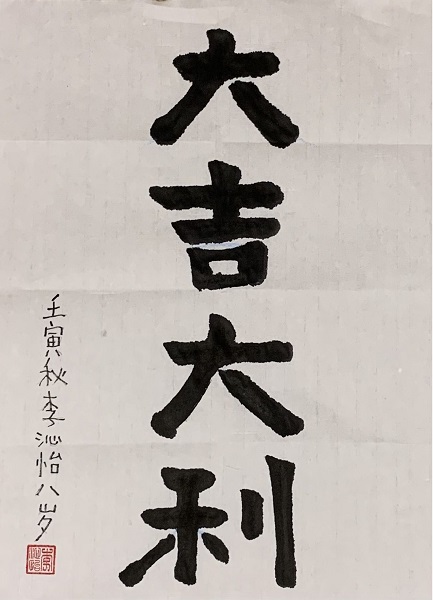 大吉大利
壬寅秋李沁怡八岁